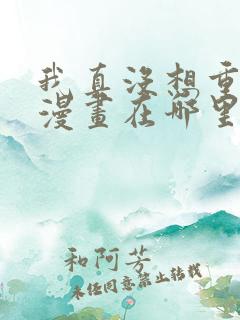 我真没想重
漫畫在哪里
和阿芳
未经同意禁止转载